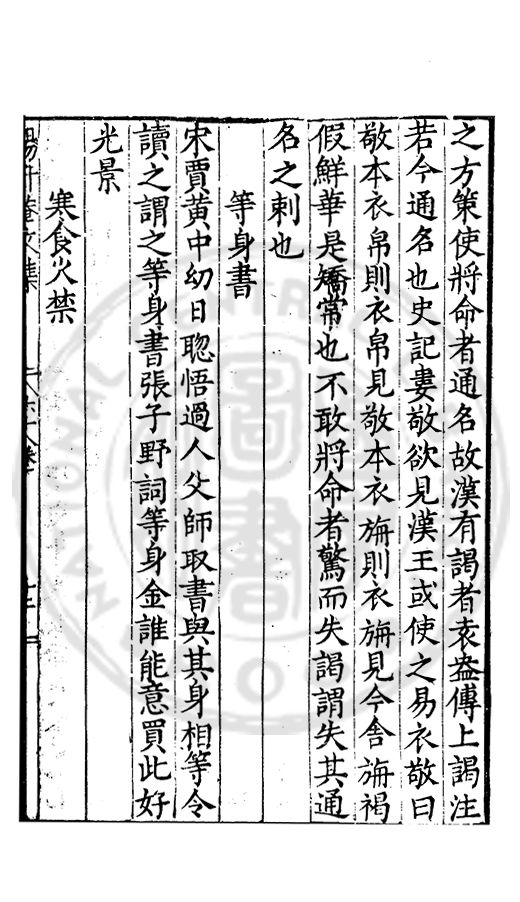 之方策使將命者通名故漢有謁者袁盎傳上謁注
若今通名也史記婁敬欲見漢王或使之易衣敬曰
敬本衣帛則衣帛見敬本衣旃則衣旃見今舍旃褐
假鮮華是矯常也不敢將命者驚而失謁謂失其通
名之刺也
等身書
宋賈黃中幼日聦悟過人父師取書與其身相等令
讀之謂之等身書張子野詞等身金誰能意買此好
光景
寒食火禁